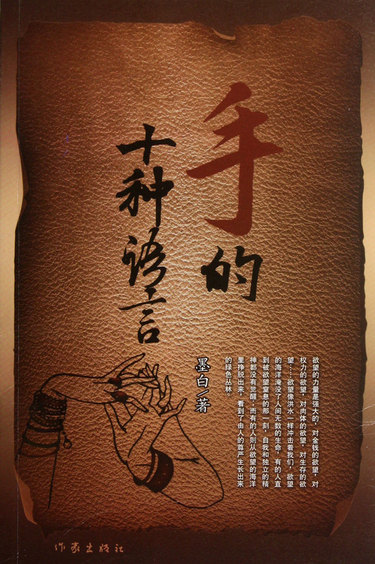 手的
十种语言
墨白 著
欲望的力量是强大的，对金钱的欲望，对
权力的欲望，对肉体的欲望，对生存的欲
望……欲望像洪水一样冲击着我们，欲望
的海洋淹没了人间无数的生命，有的人直
到被欲望窒息的那一刻，自我和独立的精
神都没有觉醒，而有的人则从欲望的海洋
里挣脱出来，看到了由人的尊严生长出来
的绿色丛林。
作家出版社